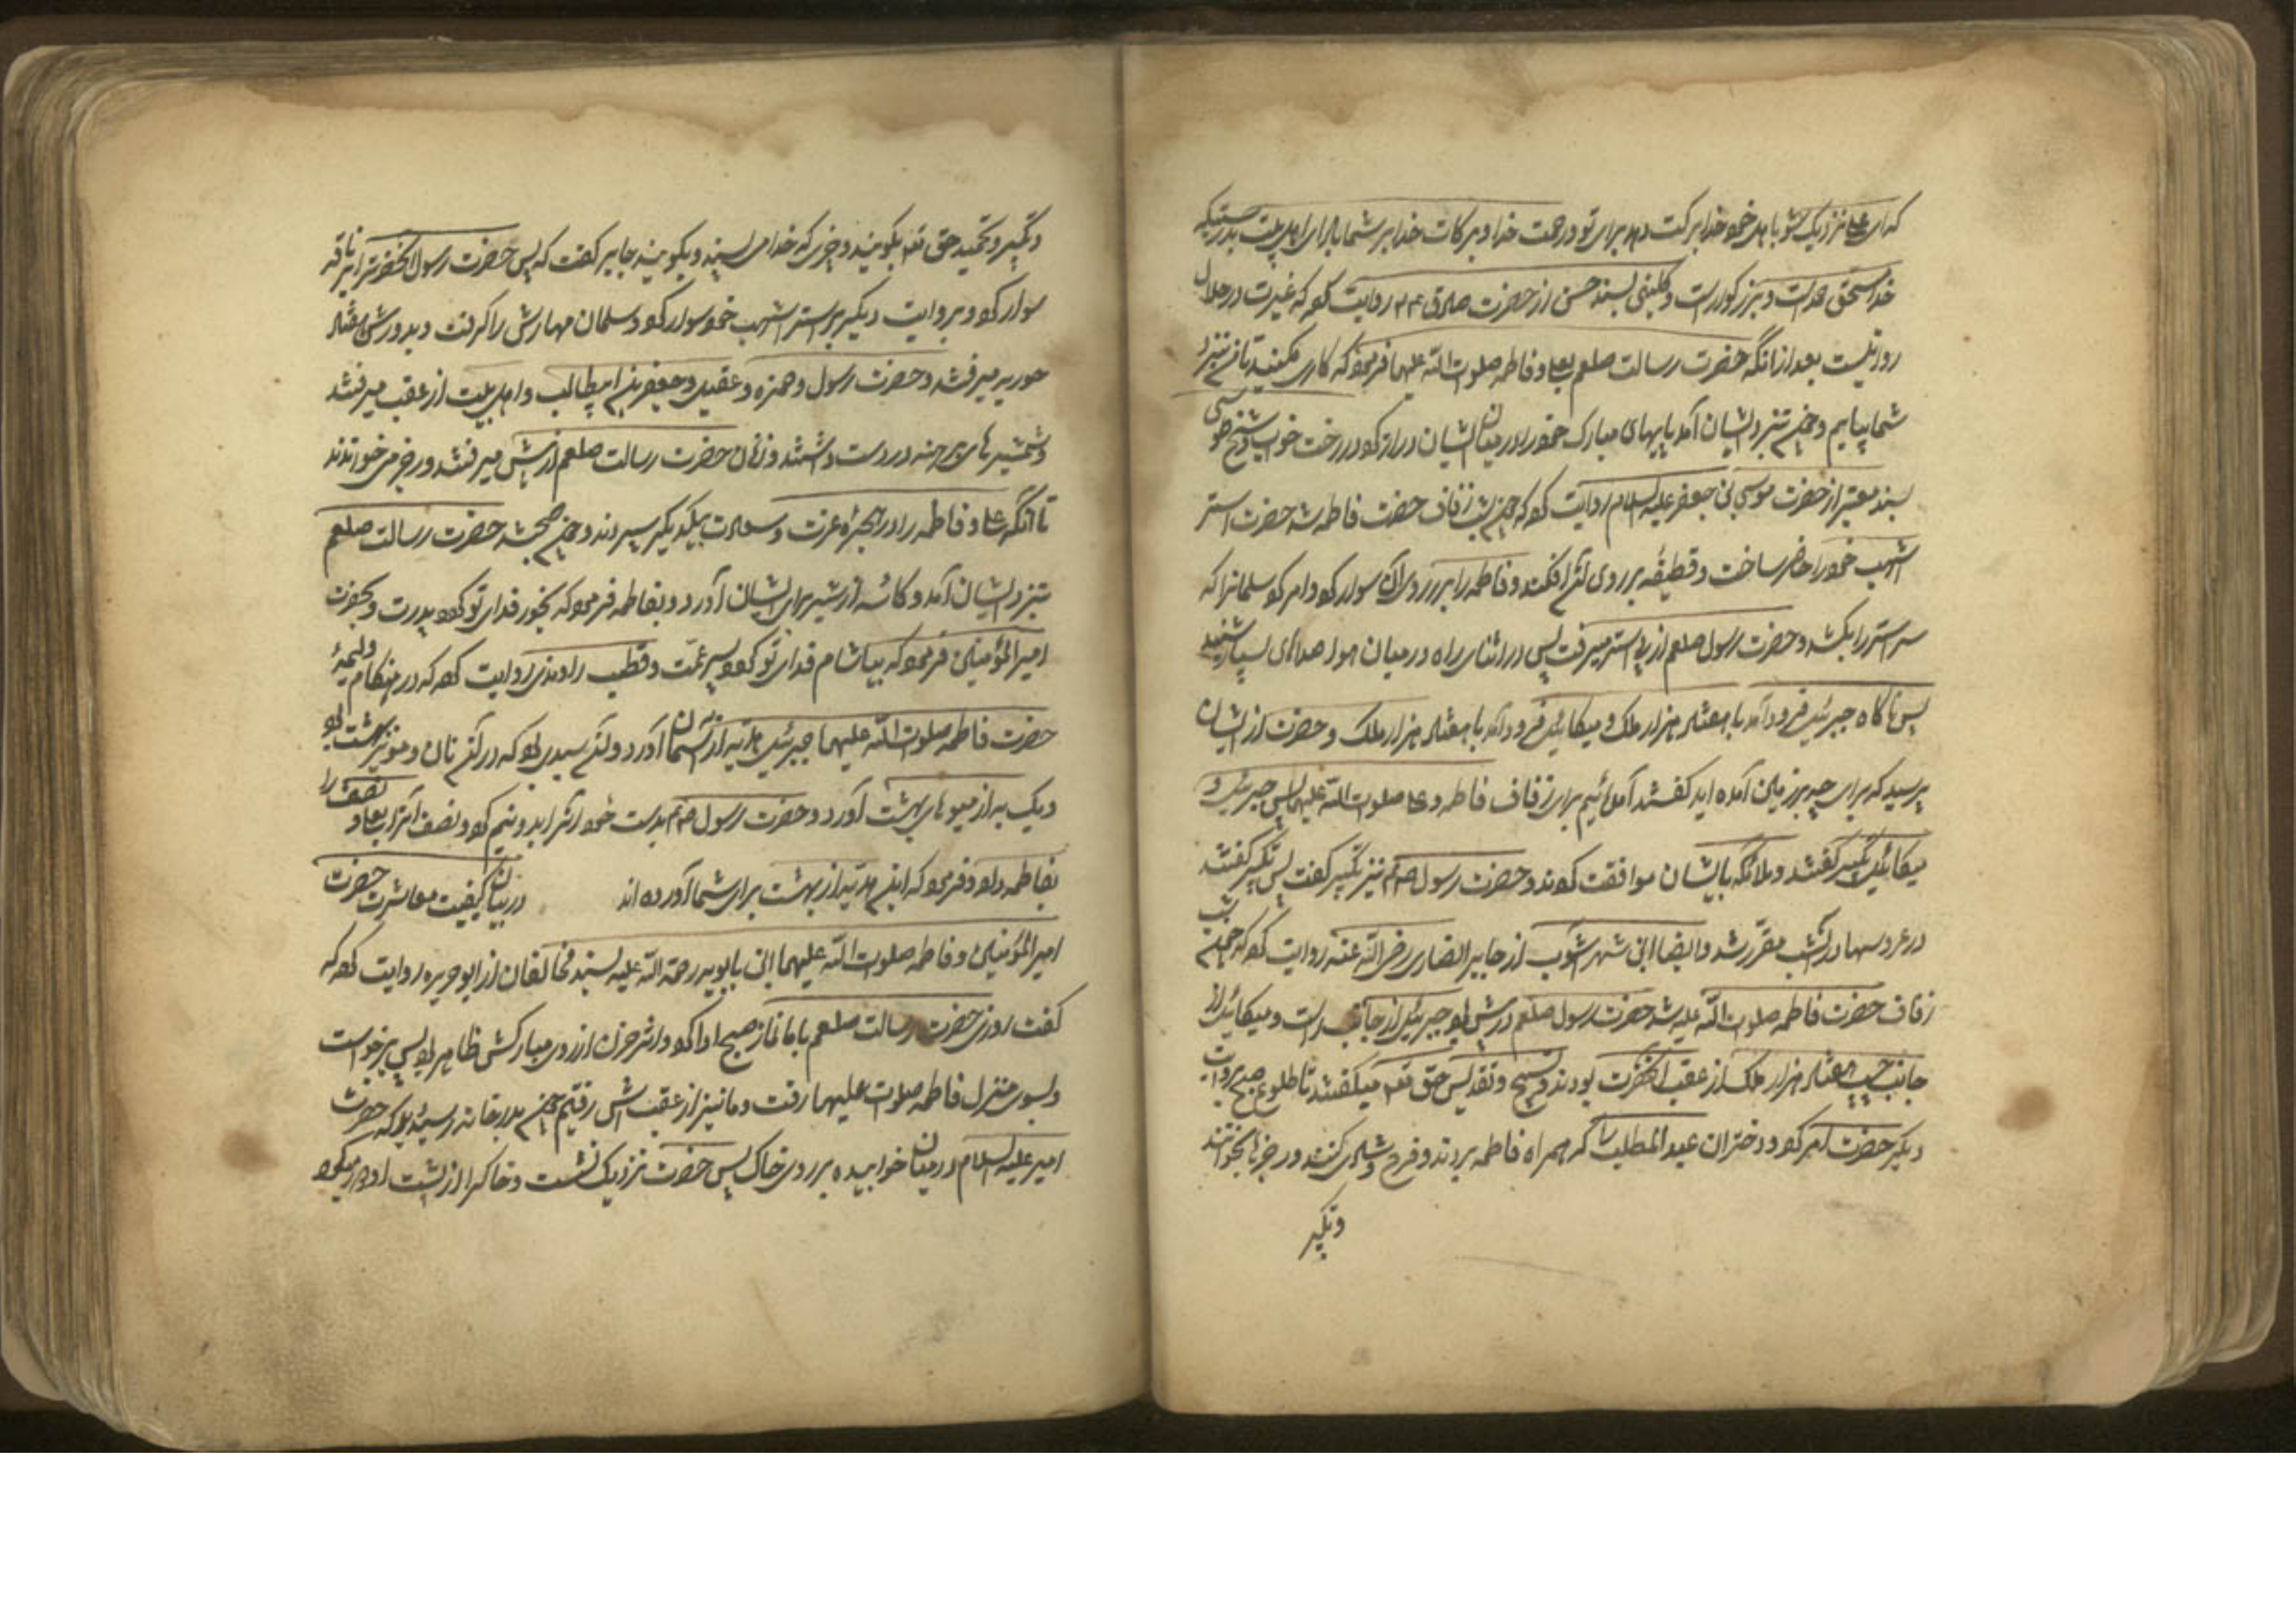 که ای علی نزدیک شو با اهل خود خدا برکت دهد برای تو و رحمت خدا و برکات خدا بر شما باد ای اهل بیت بدرستیکه
خدا مستحق حمد است و بزرکوار است و کلینی بسند حسن از حضرت صادق ع م روایت کرده که غیرت در حلال
روا نیست بعد از آنکه حضرت رسالت صلعم بعلی و فاطمه صلوات الله علیهما فرمود که کاری مکنید تا من بنزد
شما بیایم و چون بنزد ایشان آمد پایهای مبارک خود را در میان ایشان دراز کرد در رخت خواب و شیخ طوسی
بسند معتبر از حضرت موسی بن جعفر علیه السلام روایت کرده که چون شب زفاف حضرت فاطمه شد حضرت استر
اشهب خود را حاضر ساخت و قطیفه بر روی آن افکند و فاطمه را بر روی آن سوار کرد و امر کرد سلمانرا که
سر استر را بکشد و حضرت رسول صلعم از پی استر میرفت پس در اثنای راه در میان هوا صداهای بسیار شنید
پس ناکاه جبرئیل فرود آمد با هفتاد هزار ملک و میکائیل فرود آمد با هفتاد هزار ملک و حضرت از ایشان
پرسید که برای چه بر زمین آمده اید کفتند آمده ائیم برای زفاف فاطمه و علی صلوات الله علیهما پس جبرئیل و
میکائیل تکبیر کفتند و ملائکه با ایشان موافقت کردند و حضرت رسول ص ع م نیز تکبیر کفت پس تکبیر کفتند
در عروسیها در آنشب مقرر شد و ایضا ابن شهر اشوب از جابر انصاری رضی الله عنه روایت کرده که چون شب
زفاف حضرت فاطمه صلوات الله علیه شد حضرت رسول صلعم در پیش بود جبرئیل از جانب راست و میکائیل از
جانب چپ و هفتاد هزار ملک از عقب آنحضرت بودند و تسبیح و تقدیس حق تعم میکفتند تا طلوع صبح بروایت
دیکر حضرت امر کرد و دختران عبد المطلب را که همراه فاطمه بروند و فرح و شادی کنند و رجزها بخوانند
و تکبیر
و تکبیر و تحمید حق تعم بکویند و چیزی که خدا می پسندد بکویند جابر کفت که پس حضرت رسول آنحضرترا بر ناقه
سوار کرد و بروایت دیکر بر استر اشهب خود سوار کرد و سلمان مهارش را کرفت و بدورش هفتاد
حوریه میرفتند و حضرت رسول و حمزه و عقیل و جعفر بن ابیطالب و اهل بیت از عقب میرفتند
و شمشیرهای برهنه در دست داشتند و زنان حضرت رسالت صلعم از پیش میرفتند و رجز میخواندند
تا آنکه علی و فاطمه را در حجره عزت و سعادت بیکدیکر سپردند و چون صبح شد حضرت رسالت صلعم
بنزد ایشان آمد و کاسه از شیر برای ایشان آورد و بفاطمه فرمود که بخور فدای تو کردد پدرت و بحضرت
امیر المؤمنین فرمود که بیاشام فدای تو کردد پسر عمت و قطب راوندی روایت کرده که در هنکام ولیمۀ
حضرت فاطمه صلوات الله علیهما جبرئیل هدیه از آسمان آورد و آن سبدی بود که در آن نان و مویز بهشت بود
و یک به از میوهای بهشت آورد و حضرت رسول ص ع م بدست خود آنرا بدو نیم کرد و نصف آنرا بعلی و نصف را
بفاطمه داد و فرمود که این هدیه از بهشت برای شما آورده اند در بیان کیفیت معاشرت حضرت
امیر المؤمنین و فاطمه صلوات الله علیهما ابن بابویه رحمة الله علیه بسند مخالفان از ابو حریره روایت کرده که
کفت روزی حضرت رسالت صلعم با ما نماز صبح ادا کرد و اثر حزن از روی مبارکش ظاهر بود پس برخواست
و بسوی منزل فاطمه صلوات علیهما رفت و ما نیز از عقبش رفتیم چون بدر خانه رسید بود که حضرت
امیر علیه السلام در میان خوابیده بر روی خاک پس حضرت نزدیک نشست و خاکرا از پشت او دور میکرد